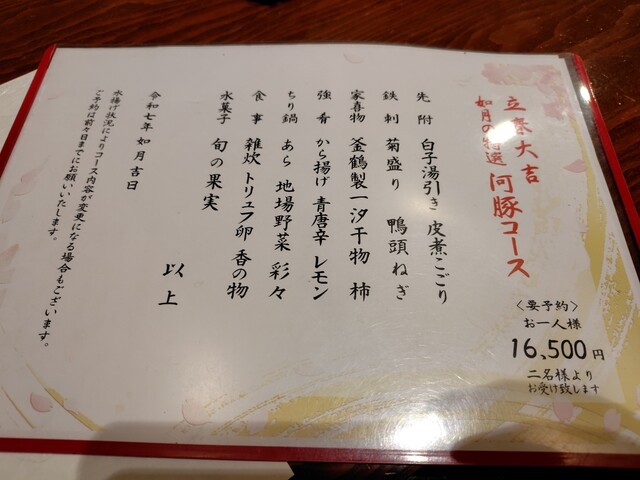 立春大吉
如月の特選 河豚コース
〈要予約〉
お一人様
16,500円
二名様より
お受け致します
先附 白子湯引き 皮煮こごり
鉄刺 菊盛り 鴨頭ねぎ
家喜物 釜鶴製一汐干物 柿
強肴 から揚げ 青唐辛 レモン
ちり鍋 あら 地場野菜 彩々
食事 雑炊 トリュフ卵 香の物
水菓子 旬の果実
以上
令和七年 如月吉日
水揚げ状況によりコース内容が変更になる場合もございます。
ご予約は前々日までにお願いいたします。